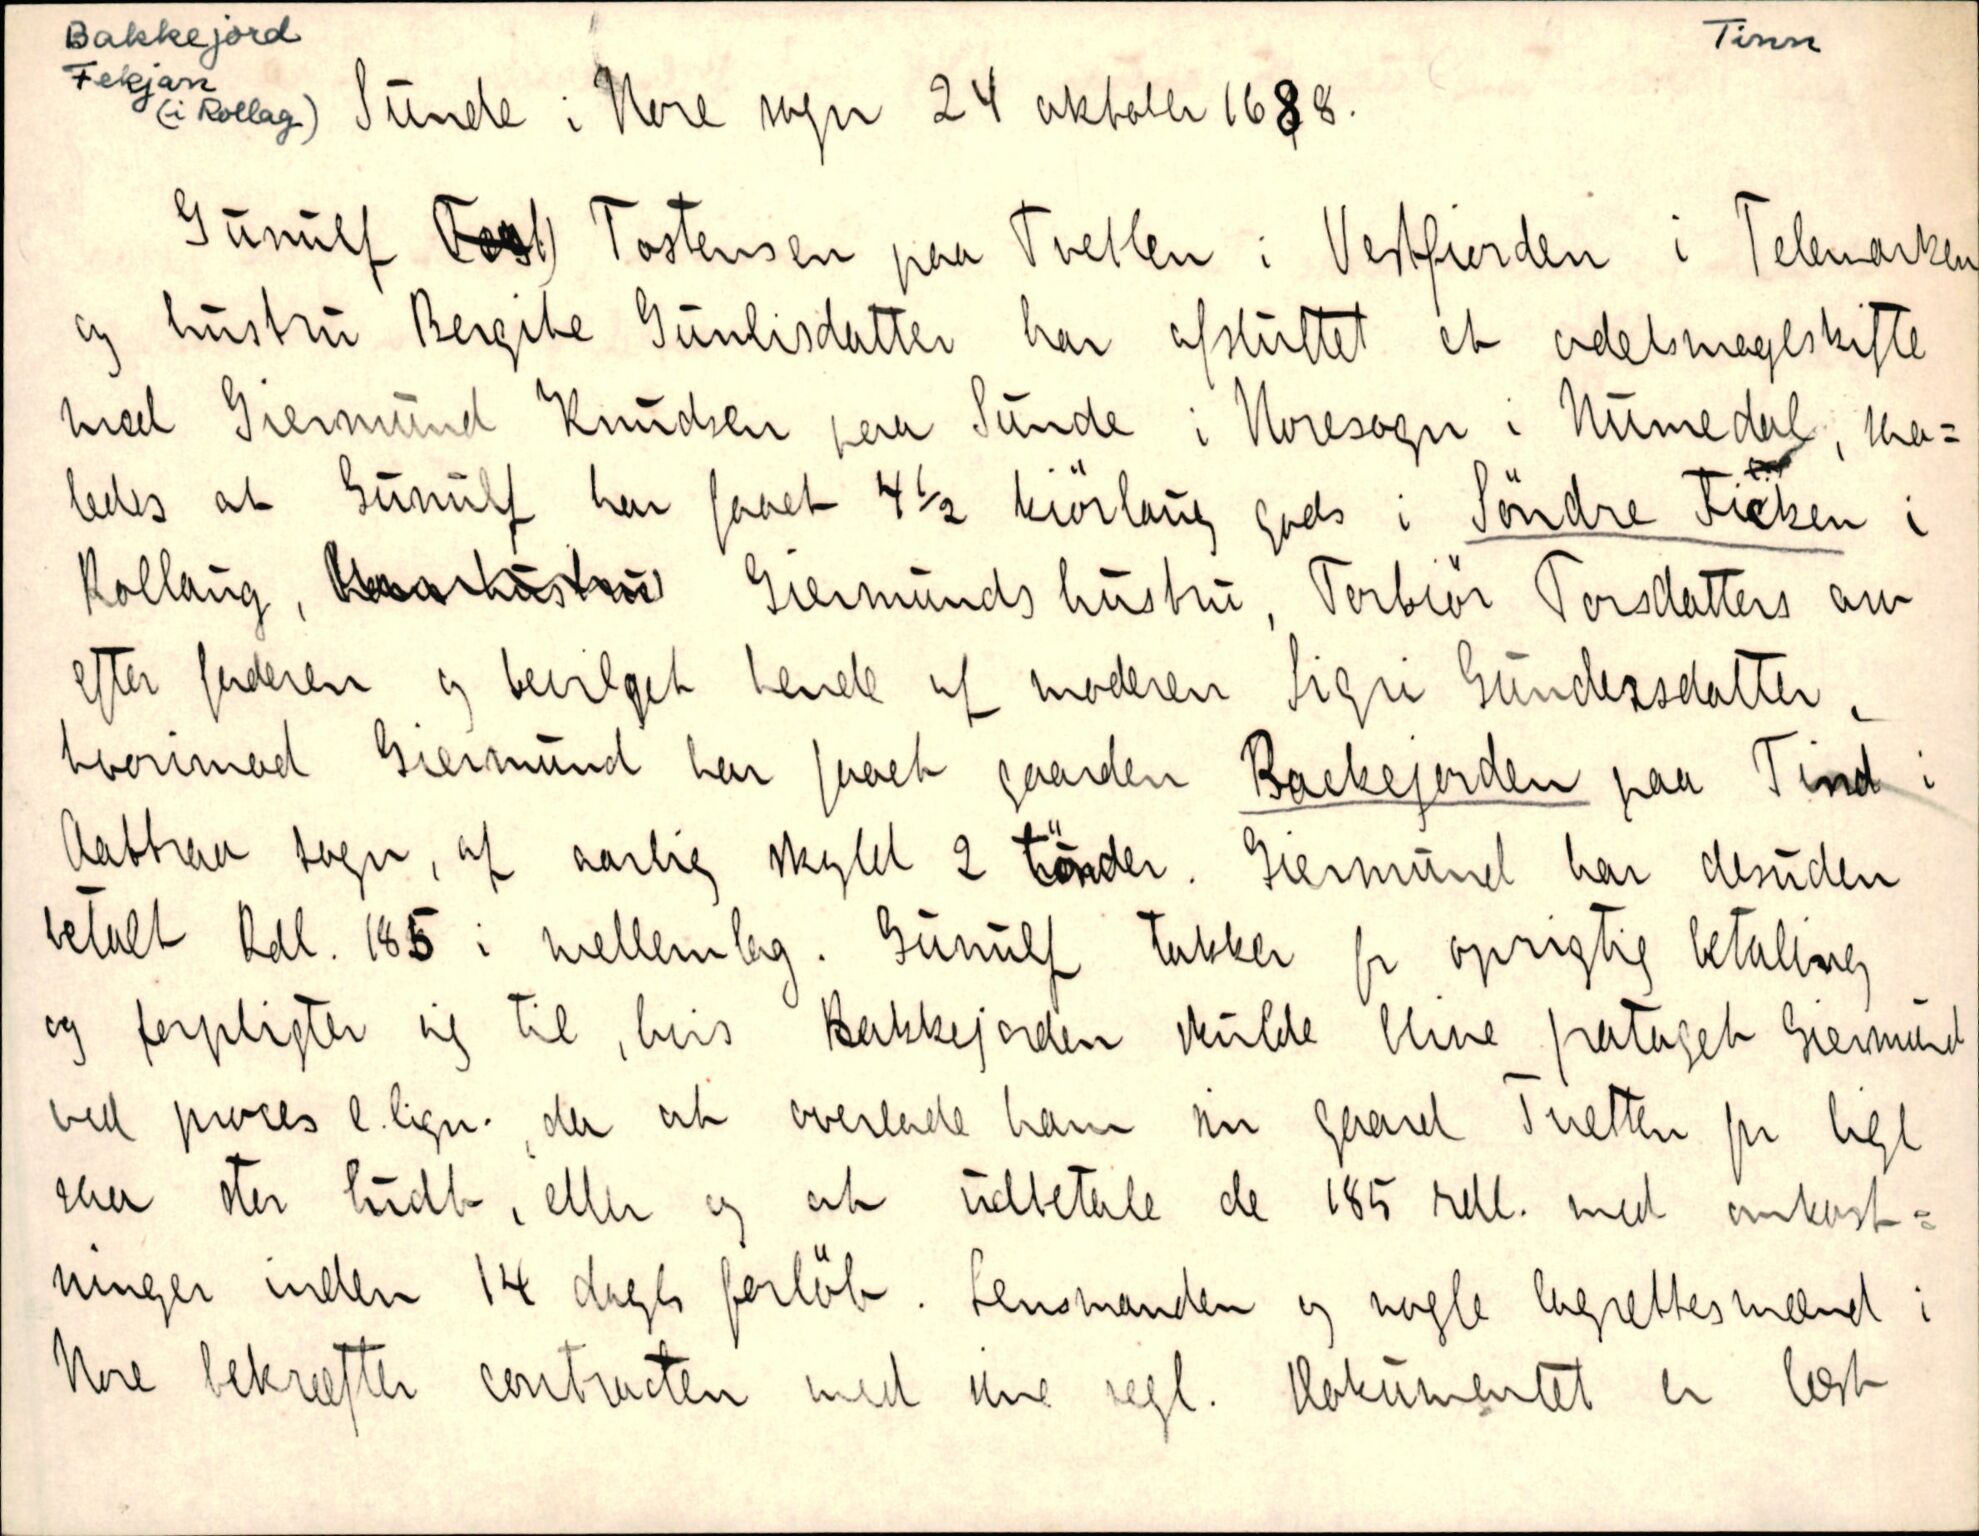 Bakkejord
Tinn
Fekjan
(i Rollag)
Sunde i Nore sogn 24 oktober 1688.
Gunulf Tostensen paa Tvetten i Vestfiorden i Telemarken
og hustru Bergite Gunlisdatter har afsluttet et odelsmageskifte
med Giermund Knudsen paa Sunde i Noresogn i Numedal, saa=
ledes at Gunulf har faaet 4 1/2 kiörlaug gods i Söndre Ficken i
Rollaug, Giermunds hustru, Torbiör Torsdatters arv
efter faderen og bevilget hende af moderen Sigri Gundersdatter,
hvorimod Giermund har faaet gaarden Backejorden paa Tind i
Aattraa sogn, af aarlig skyld 2 tönder. Giermund har desuden
betalt Rdl. 185 i mellemlag. Gunulf takker for oprigtig betaling
og forpligter sig til, hvis Bakkejorden skulde blive frataget Giermund
ved proces e.lign., da at overlade ham sin gaard Tvetten for ligl
saa stor ludt, eller og at udbetale de 185 rdl. med omkost=
ninger inden 14 dages forlöb. Lensmanden og nogle lagrettesmænd i
Nore bekræfter contracten med sine segl. Dokumentet er læst